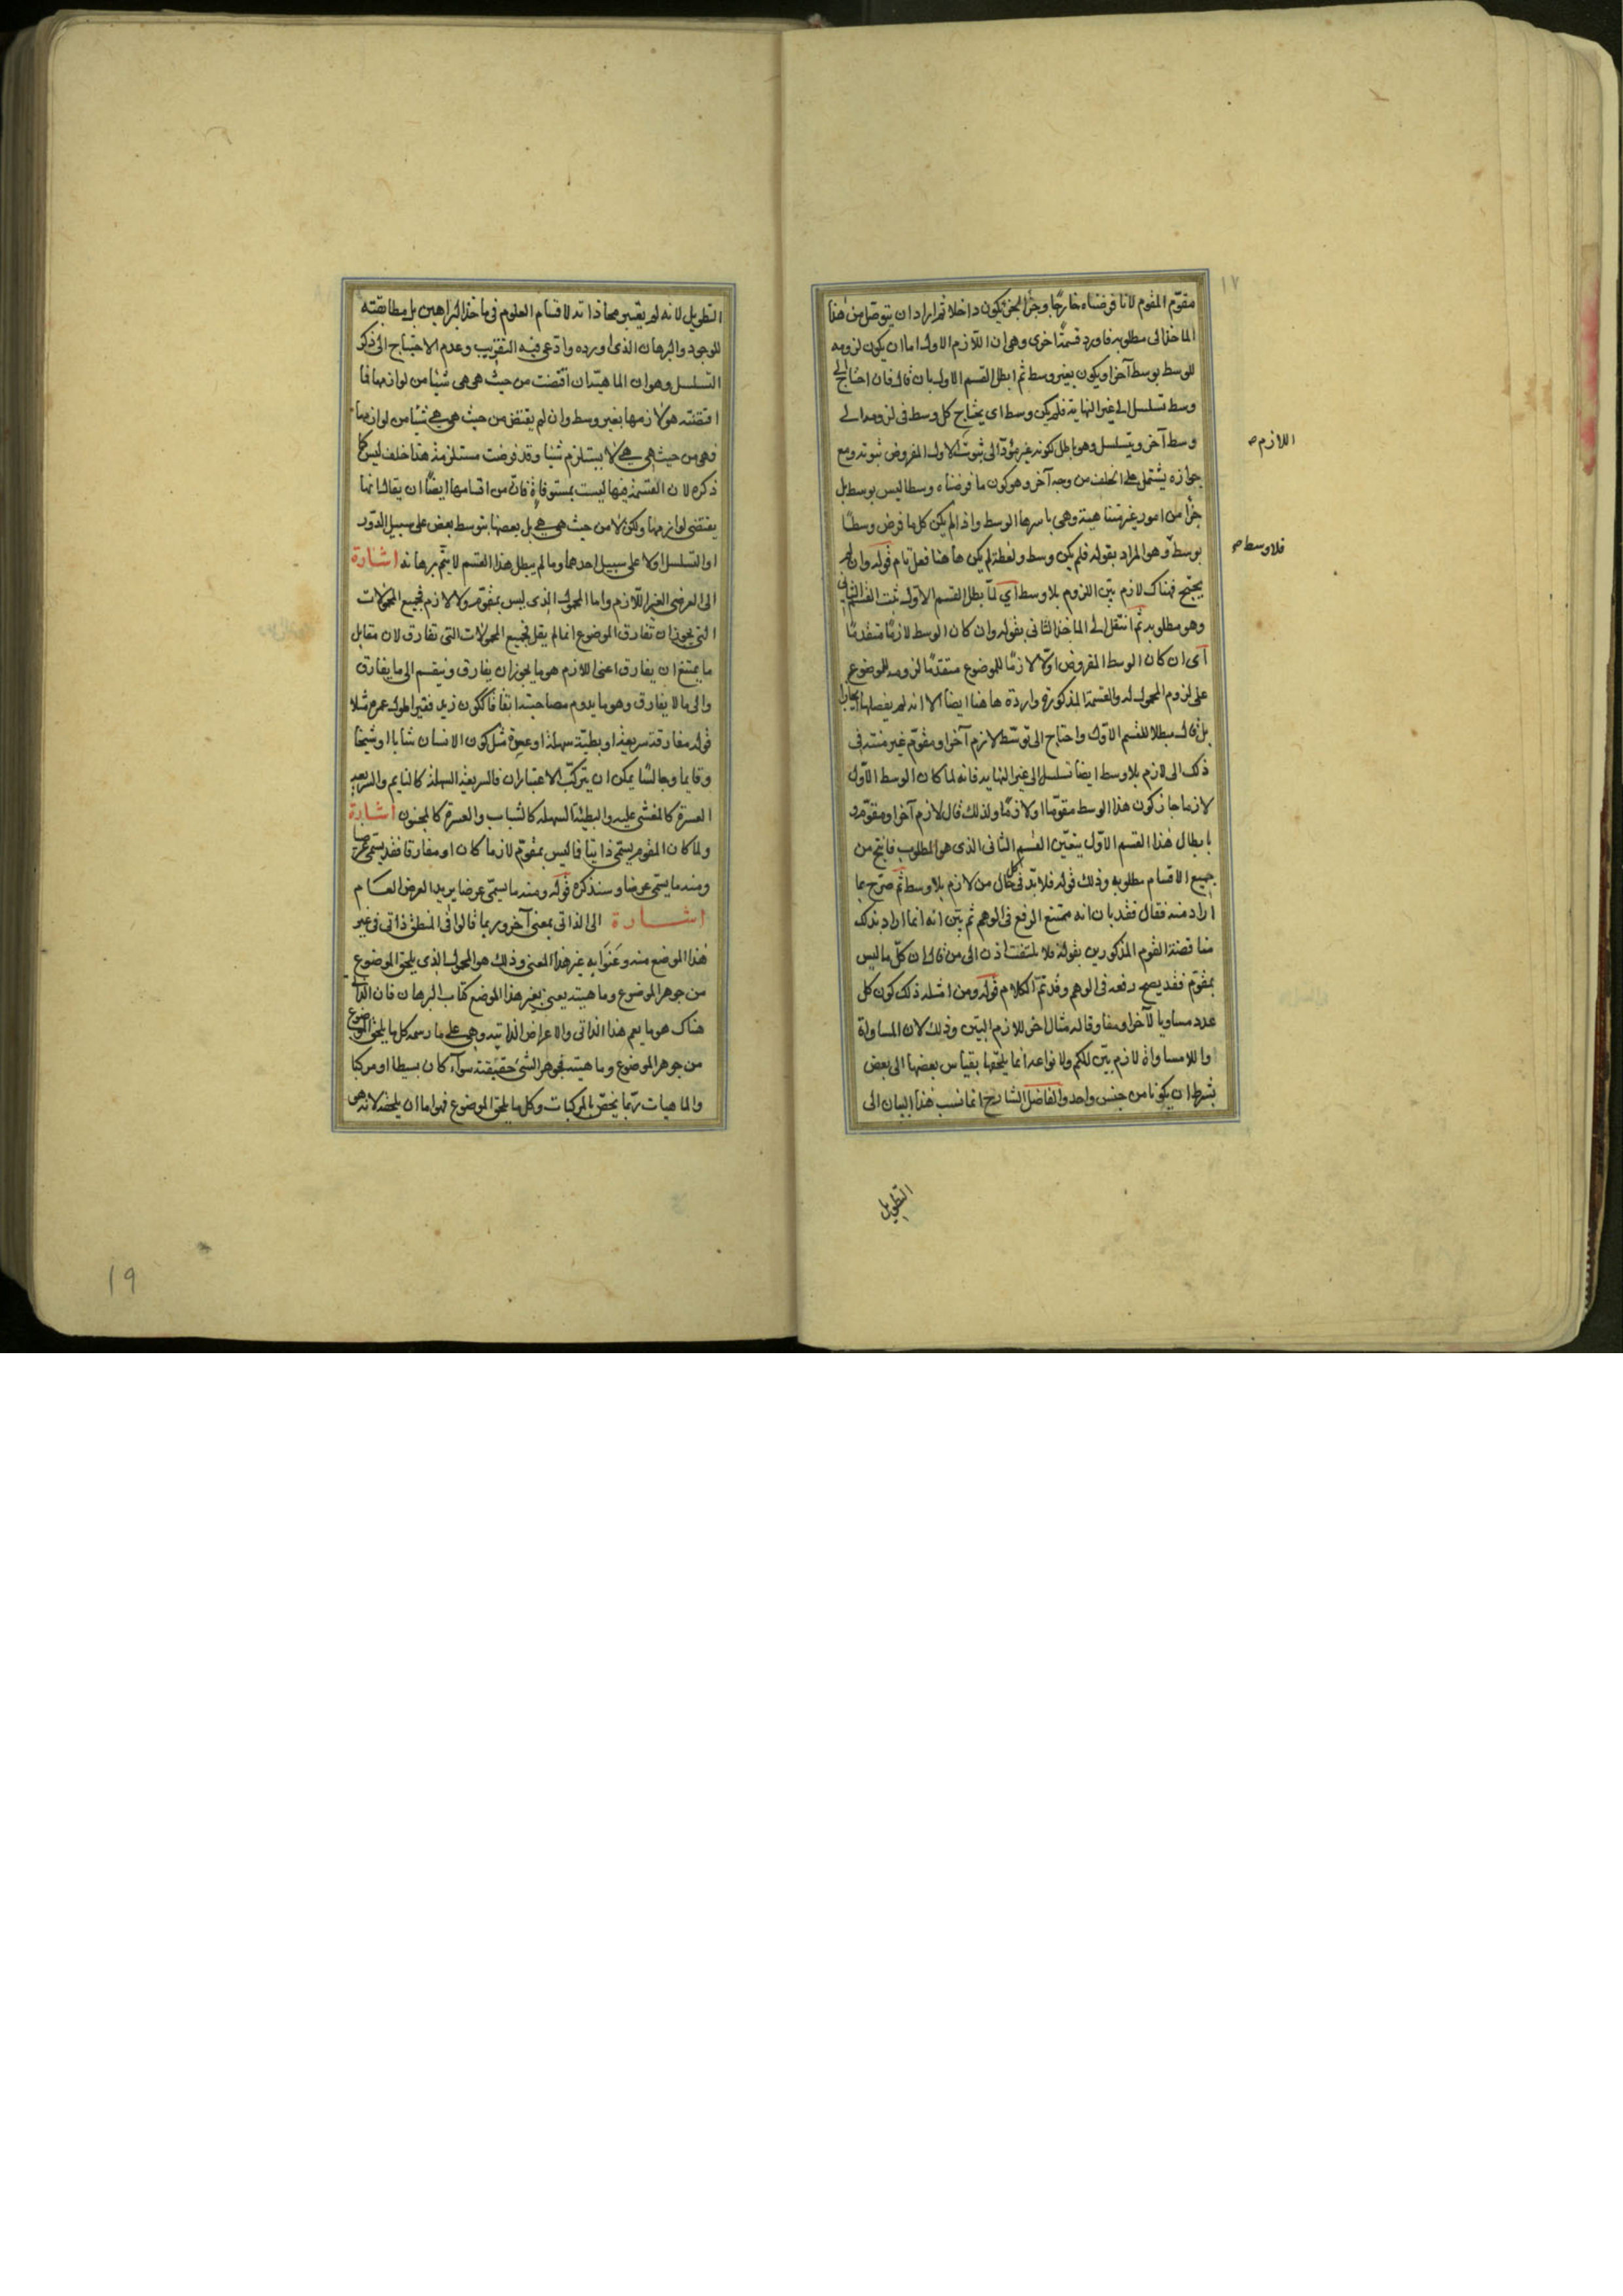 ١٧
مقوّم المقوم لانا فرضناه خارجًا وجزء الجزء يكون داخلا ثم اراد ان يتوصل من هذا
الماخذ الى مطلوبه فاورد قسمة اخرى وهى ان اللازم الاول اما ان يكون لزومه
للوسط بوسط آخر او يكون بغير وسط ثم ابطل القسم الاول بان قال فان احتاج الى
وسط تسلسل الى غير النهاية فلم يكن وسط اى يحتاج كل وسط فى لزومه الى
وسط آخر ويتسلسل وهو باطل لكونه غير مؤد الى ثبوت الاول المفروض ثبوته ومع
اللازم صح
جوازه يشتمل على الخلف من وجه آخر وهو كون ما فرضناه وسطا ليس بوسط بل
جزأ من امور غير متناهية وهى باسرها الوسط واذا لم يكن كل ما فرض وسطًا
بوسط وهو المراد بقوله فلم يكن وسط ولفظة لم يكن هاهنا فعل تام قوله وان لم
فلا وسط صح
يحتج فهناك لازم بيّن اللزوم بلا وسط اى لمّا بطل القسم الاول ثبت القسم الثانى
وهو مطلوبه ثم انتقل الى الماخذ الثانى بقوله وان كان الوسط لازمًا متقدمًا
اى ان كان الوسط المفروض اوّلا لازمًا للموضوع متقدمًا لزومه للموضوع
على لزوم المحمول له والقسمة المذكورة واردة هاهنا ايضا الا انه لم يفصلها
بل قال مبطلا للقسم الاول واحتاج الى توسّط لازم آخر او مقوم غير منته فى
ذلك الى لازم بلا وسط ايضا تسلسل الى غير النهاية فانه لما كان الوسط الاول
لازما جاز كون هذا الوسط مقوّما او لازمًا ولذلك قال لازم آخر او مقوّم و
بابطال هذا القسم الاول يتعيّن القسم الثانى الذى هو المطلوب فانتج من
جميع الاقسام مطلوبه وذلك قوله فلا بدّ فى كل حال من لازم بلا وسط ثم صرّح بما
اراد منه فقال فقد بان انه ممتنع الرفع فى الوهم ثم بيّن انه انما اراد بذلك
مناقضة القوم المذكورين بقوله فلا يلتفت اذن الى من قال ان كلّ ما ليس
بمقوّم فقد يصح رفعه فى الوهم وقد تمّ الكلام قوله ومن امثلة ذلك كون كل
عدد مساويا لآخر او مفاوتا له مثال اخر للازم البيّن وذلك لان المساواة
واللامساواة لازم بيّن للكم ولانواعه انما يلحقها بقياس بعضها الى بعض
بشرط ان يكونا من جنس واحد والفاضل الشارح انما نسب هذا البيان الى
التطويل
التطويل لانه لم يعتبر محاذاته لاقسام العلوم فى ماخذ البراهين بل مطابقته
للوجود والبرهان الذى اورده وادّعى فيه التقريب وعدم الاحتياج الى ذكر
التسلسل وهو ان الماهية ان اقتضت من حيث هى هى شيئا من لوازمها فما
اقتضته هو لازمها بغير وسط وان لم يقتض من حيث هى هى شيئا من لوازمها
فهى من حيث هى هى لا يستلزم شيئا وقد فرضت مستلزمة هذا خلف ليس كما
ذكره لان القسمة فيها ليست بمستوفاة فانّ من اقسامها ايضًا ان يقال انما
يقتضى لوازمها ولكن لا من حيث هى هى بل بعضها بتوسط بعض على سبيل الدّور
او التسلسل او لا على سبيل احدهما وما لم يبطل هذا القسم لا يتمّ برهانه اشارة
الى العرضى الغير اللّازم واما المحمول الذى ليس بمقوّم ولا لازم فجميع المحمولات
التى يجوز ان تفارق الموضوع انما لم يقل فجميع المحمولات التى تفارق لان مقابل
ما يمتنع ان يفارق اعنى اللازم هو ما يجوز ان يفارق وينقسم الى ما يفارق
والى ما لا يفارق وهو ما يدوم مصاحبته اتفاقا ككون زيد فقيرا طول عمره مثلا
قوله مفارقة سريعة او بطيئة سهلة او عسرة مثل كون الانسان شابا او شيخا
وقايما وجالسًا يمكن ان يتركّب الاعتباران فالسريعة السهلة كالنايم والسريعة
العسرة كالمغشى عليه والبطيئة السهلة كالشباب والعسرة كالمجنون اشارة
ولما كان المقوم يسمّى ذاتيا فما ليس بمقوّم لازما كان او مفارقا فقد يسمّى عرضيا
ومنه ما يسمّى عرضا وسنذكره قوله ومنه ما يسمّى عرضا يريد العرض العام
اشارة الى الذاتى بمعنى آخر وربما قالوا فى المنطق ذاتى فى غير
هذا الموضع منه وعَنَوا به غير هذا المعنى وذلك هو المحمول الذى يلحق الموضوع
من جوهر الموضوع وماهيته يعنى بغير هذا الموضع كتاب البرهان فان الذاتى
هناك هو ما يعم هذا الذاتى والاعراض الذاتية وهى على ما رسمه كل ما يلحق الموضوع
من جوهر الموضوع وماهيته فجوهر الشئ حقيقته سوآء كان بسيطا او مركبا
والماهيات ربّما يخصّ بالمركبات وكل ما يلحق الموضوع فهو اما ان يلحقه لانه هو
19